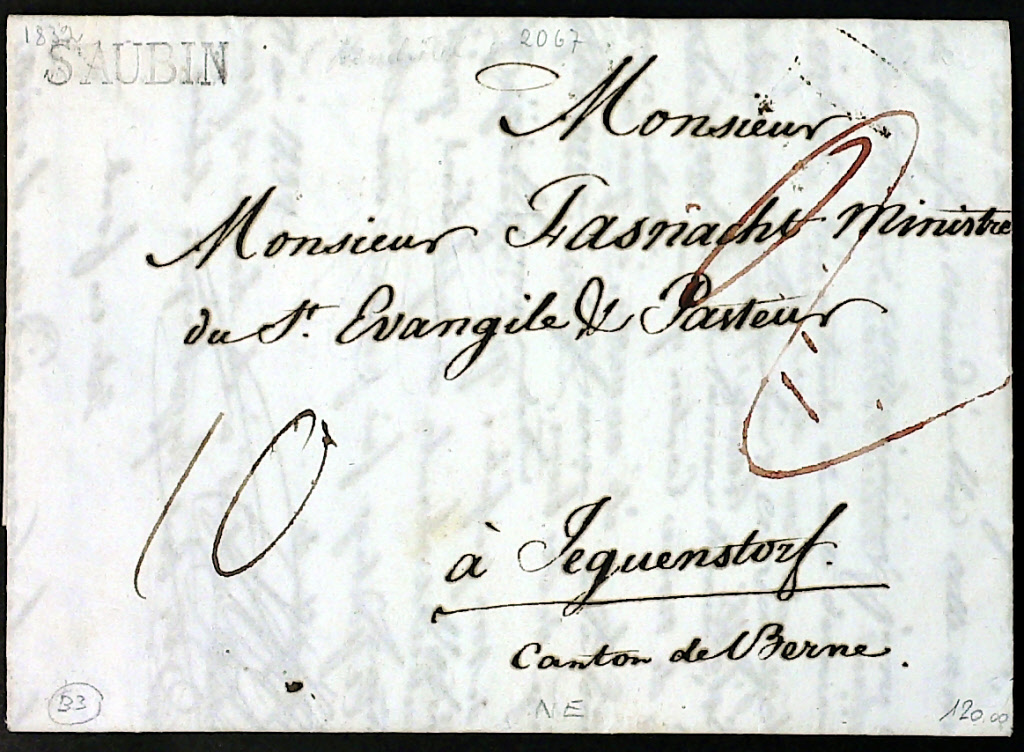 1832
2067
S'AUBIN
Monsieur
Monsieur Fasnacht Ministre
du St. Evangile & Pasteur
10
à Jequenstorf.
Canton de Berne.
B3
NE
120.00